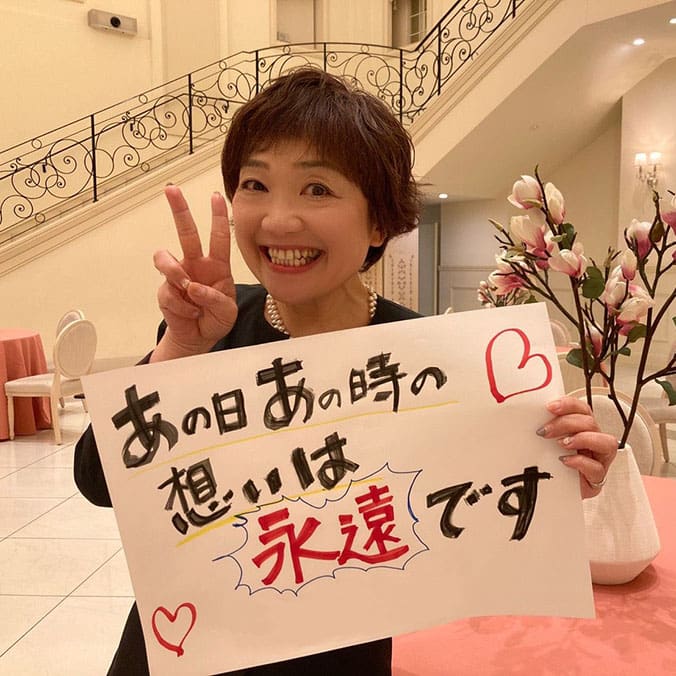 あの日あの時の
想いは
永遠です